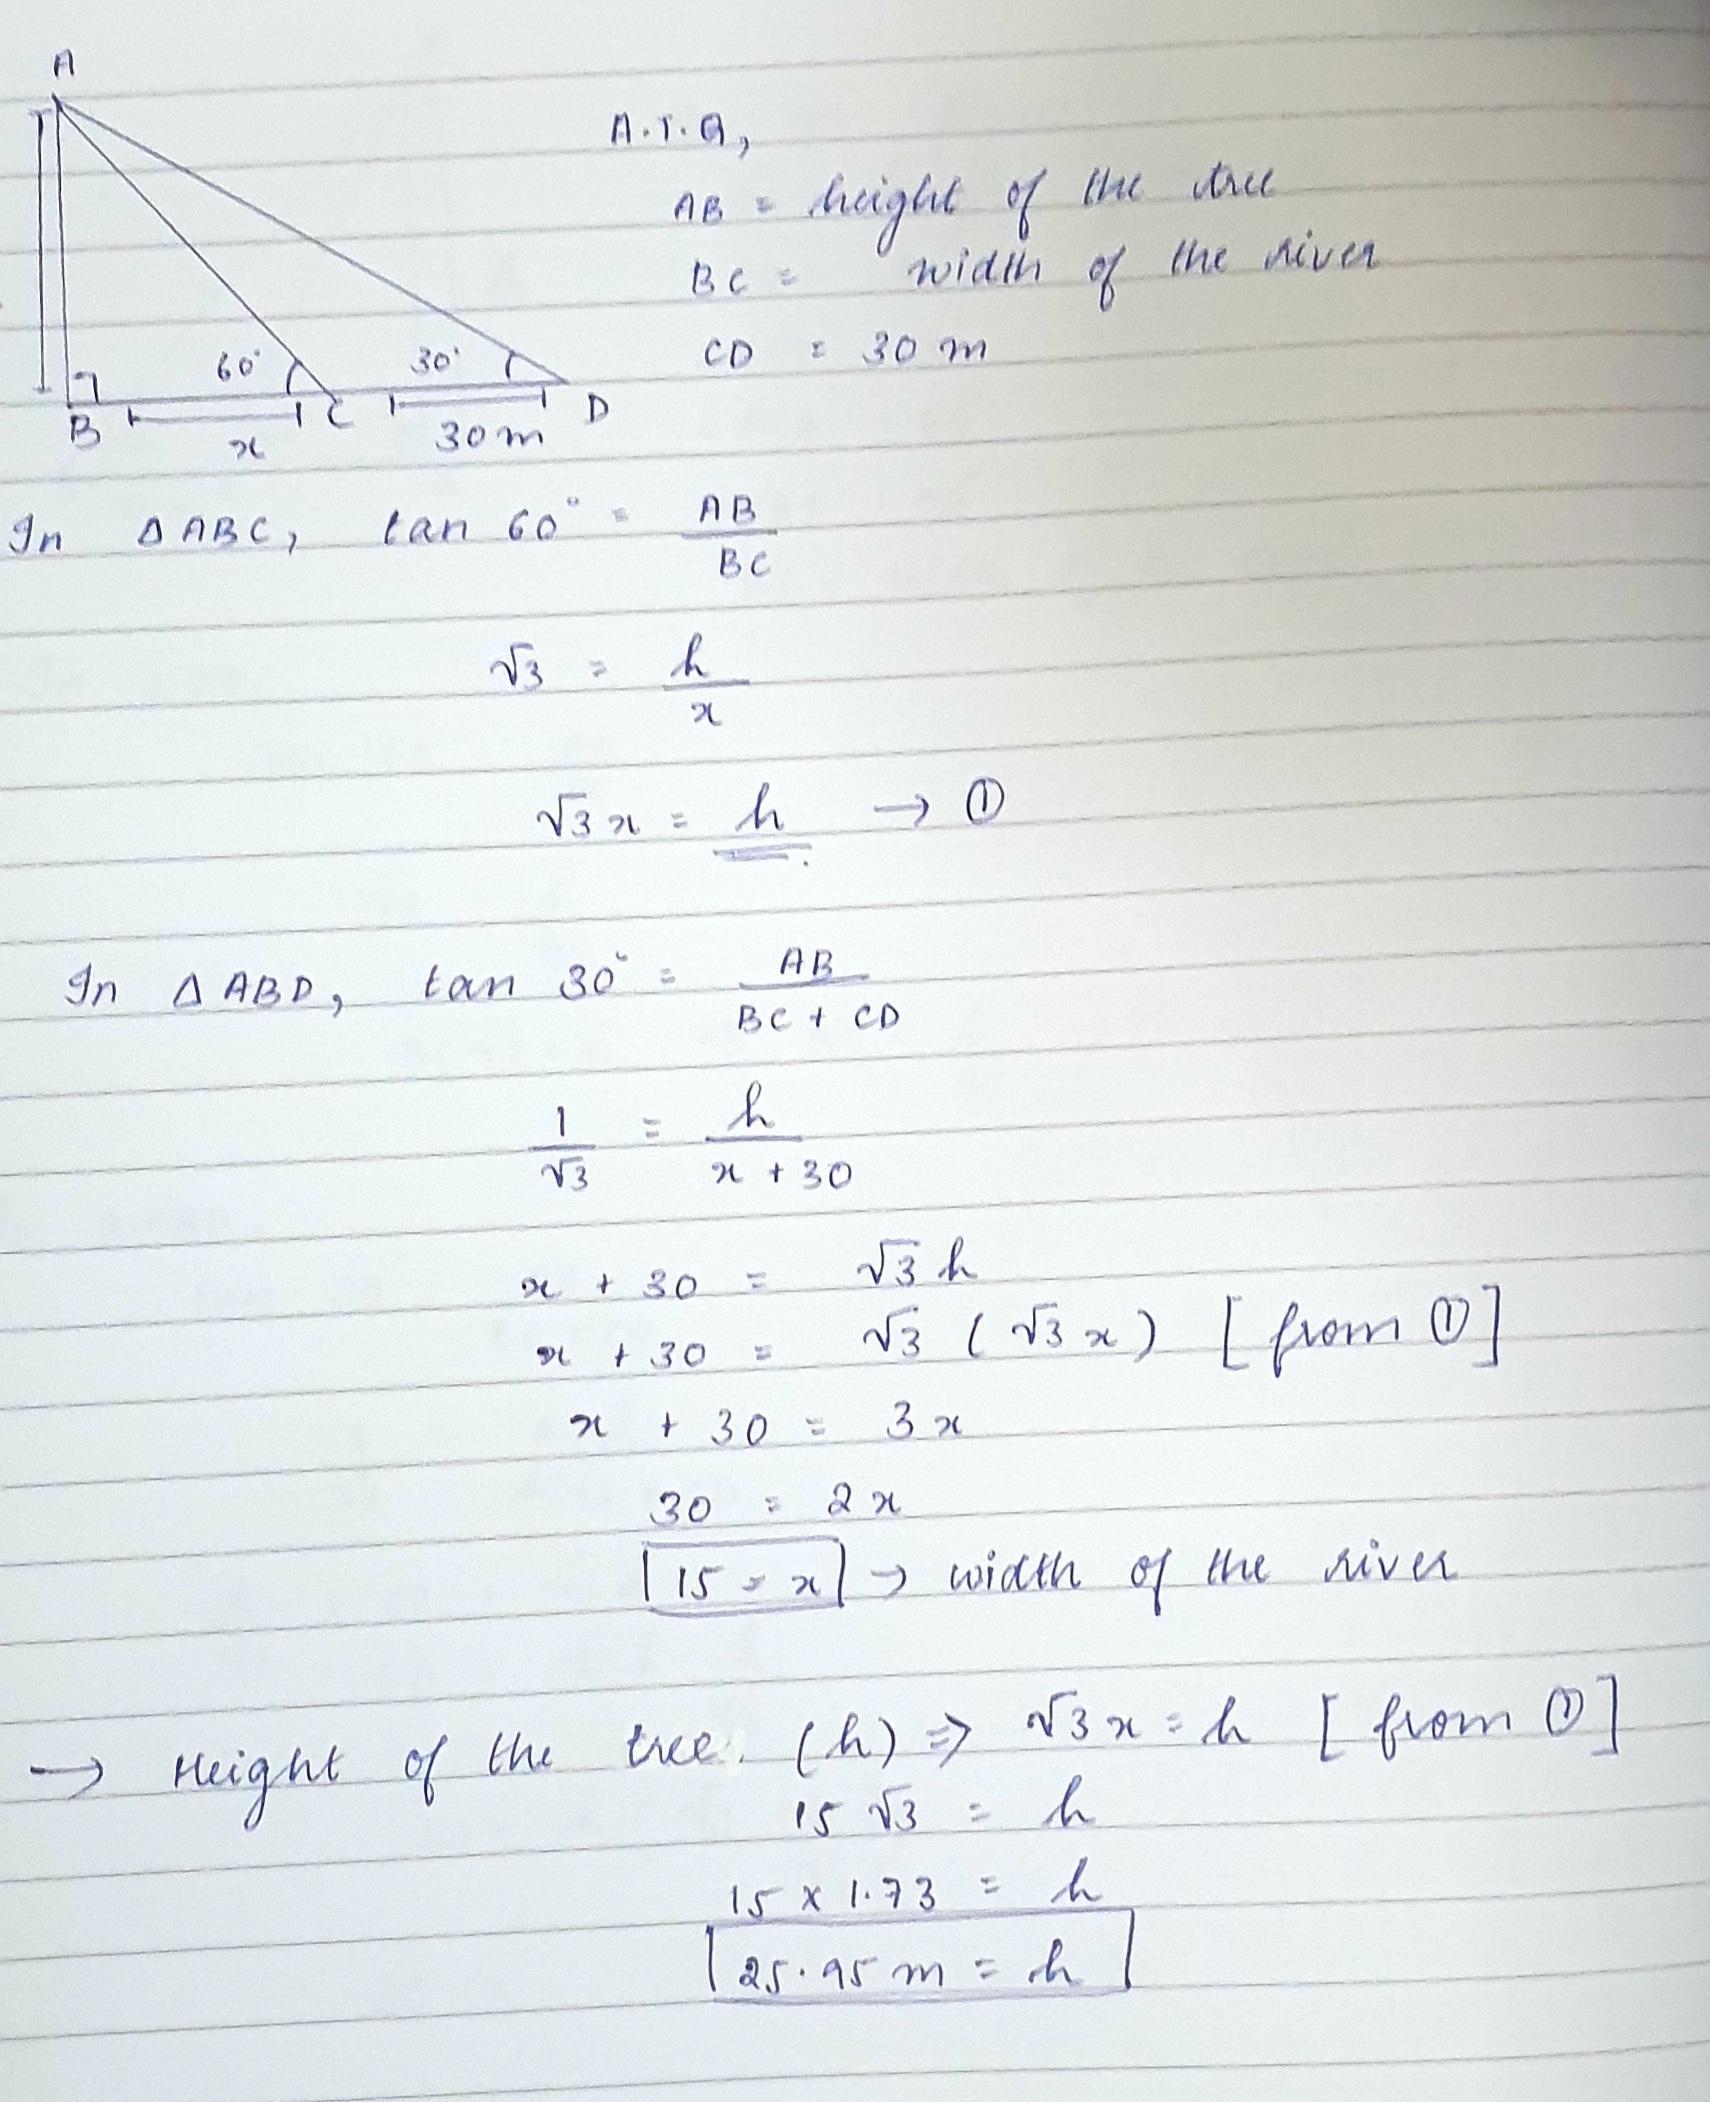 A
A.T.Q,
AB = height of the tree
BC = width of the river
CD = 30 m
60° 30°
B C D
x 30m
In Δ ABC, tan 60° = AB/BC
√3 = h/x
√3 x = h → ①
In Δ ABD, tan 30° = AB/BC + CD
1/√3 = h/x + 30
x + 30 = √3 h
x + 30 = √3 ( √3 x ) [ from ① ]
x + 30 = 3 x
30 = 2 x
15 = x → width of the river
→ Height of the tree. (h) ⇒ √3 x = h [ from ① ]
15 √3 = h
15 x 1.73 = h
25.95 m = h